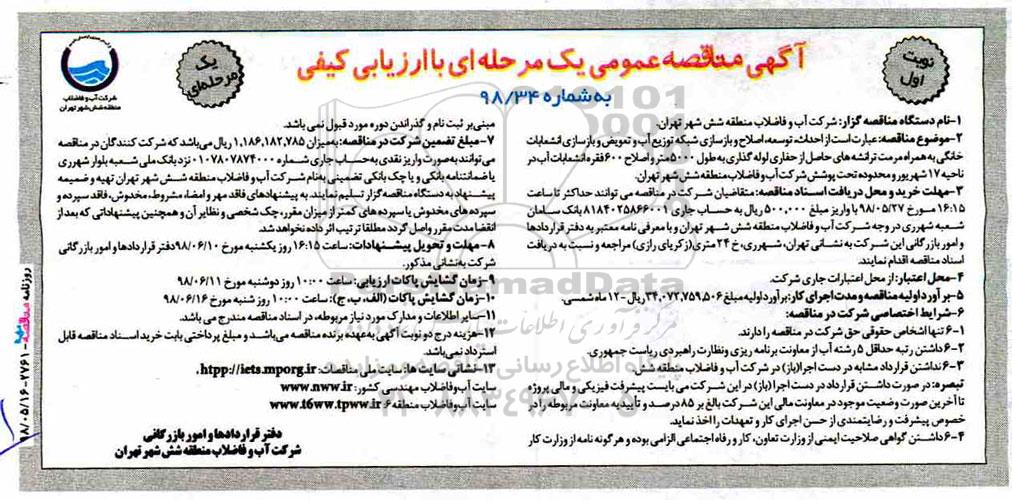 آگهی مناقصه عمومی یک مرحله ای با ارزیابی کیفی
به شماره ۹۸/۳۴
نوبت
اول
یک
مرحله‌ای
شرکت آب و فاضلاب
منطقه شش شهر تهران
۱-نام دستگاه مناقصه گزار: شرکت آب و فاضلاب منطقه شش شهر تهران.
۲-موضوع مناقصه: عبارت است از احداث، توسعه، اصلاح و بازسازی شبکه توزیع آب و تعویض و بازسازی انشعابات
خانگی به همراه مرمت ترانشه های حاصل از حفاری لوله گذاری به طول ۵۰۰۰ متر و اصلاح ۶۰۰ فقره انشعابات آب در
ناحیه ۱۷ شهریور و محدوده تحت پوشش شرکت آب و فاضلاب منطقه شش شهر تهران.
۳-مهلت خرید و محل دریافت اسناد مناقصه: متقاضیان شرکت در مناقصه می توانند حداکثر تا ساعت
۱۶:۱۵ مورخ ۹۸/۰۵/۲۷ با واریز مبلغ ۵۰۰,۰۰۰ ریال به حساب جاری ۸۱۸۴۰۲۵۸۶۶۰۰۱ بانک سامان
شعبه شهرری در وجه شرکت آب و فاضلاب منطقه شش شهر تهران و با معرفی نامه معتبر به دفتر قراردادها
و امور بازرگانی این شرکت به نشانی تهران، شهرری، خ ۲۴ متری (زکریای رازی) مراجعه و نسبت به دریافت
اسناد مناقصه اقدام نمایند.
۴-محل اعتبار: از محل اعتبارات جاری شرکت.
۵-برآورد اولیه مناقصه و مدت اجرای کار: برآورد اولیه مبلغ ۳۴,۰۷۲,۷۵۹,۵۰۶ ریال - ۱۲ ماه شمسی.
۶-شرایط اختصاصی شرکت در مناقصه:
۶-۱ تنها اشخاص حقوقی حق شرکت در مناقصه را دارند.
۶-۲ داشتن رتبه حداقل ۵ رشته آب از معاونت برنامه ریزی و نظارت راهبردی ریاست جمهوری.
۶-۳ نداشتن قرارداد مشابه در دست اجرا (باز) در شرکت آب و فاضلاب منطقه شش.
تبصره: در صورت داشتن قرارداد در دست اجرا (باز) در این شرکت می بایست پیشرفت فیزیکی و مالی پروژه
تا آخرین صورت وضعیت موجود در معاونت مالی این شرکت بالغ بر ۸۵ درصد و تأییدیه معاونت مربوطه را در
خصوص پیشرفت و رضایتمندی از حسن اجرای کار و تعهدات را اخذ نماید.
۶-۴ داشتن گواهی صلاحیت ایمنی از وزارت تعاون، کار و رفاه اجتماعی الزامی بوده و هرگونه نامه از وزارت کار
مبنی بر ثبت نام و گذراندن دوره مورد قبول نمی باشد.
۷-مبلغ تضمین شرکت در مناقصه: به میزان ۱,۱۸۶,۱۸۲,۷۸۵ ریال می باشد که شرکت کنندگان در مناقصه
می توانند به صورت واریز نقدی به حساب جاری شماره ۰۱۰۷۸۰۷۸۷۴۰۰۰ نزد بانک ملی شعبه بلوار شهرری
یا ضمانتنامه بانکی و یا چک بانکی تضمینی به نام شرکت آب و فاضلاب منطقه شش شهر تهران تهیه و ضمیمه
پیشنهاد به دستگاه مناقصه گزار تسلیم نمایند. به پیشنهادهای فاقد مهر و امضاء، مشروط، مخدوش، فاقد سپرده و
سپرده های مخدوش یا سپرده های کمتر از میزان مقرر، چک شخصی و نظایر آن و همچنین پیشنهاداتی که بعد از
انقضا مدت مقرر واصل گردد مطلقا ترتیب اثر داده نخواهد شد.
۸-مهلت و تحویل پیشنهادات: ساعت ۱۶:۱۵ روز یکشنبه مورخ ۹۸/۰۶/۱۰ دفتر قراردادها و امور بازرگانی
شرکت به نشانی مذکور.
۹-زمان گشایش پاکات ارزیابی: ساعت ۱۰:۰۰ روز دوشنبه مورخ ۹۸/۰۶/۱۱
۱۰-زمان گشایش پاکات (الف، ب، ج): ساعت ۱۰:۰۰ روز شنبه مورخ ۹۸/۰۶/۱۶
۱۱-سایر اطلاعات و مدارک مورد نیاز مربوطه، در اسناد مناقصه مندرج می باشد.
۱۲-هزینه درج دو نوبت آگهی به عهده برنده مناقصه می باشد و مبلغ پرداختی بابت خرید اسناد مناقصه قابل
استرداد نمی باشد.
۱۳-نشانی سایت ها: سایت ملی مناقصات: htpp://iets.mporg.ir،
سایت آب و فاضلاب مهندسی کشور: www.nww.ir
سایت آب و فاضلاب منطقه ۶: www.t6ww.tpww.ir
دفتر قراردادها و امور بازرگانی
شرکت آب و فاضلاب منطقه شش شهر تهران
روزنامه مناقصه مهر - ۷۷۶۱ - ۹۸/۰۵/۱۶
ParsNamadData